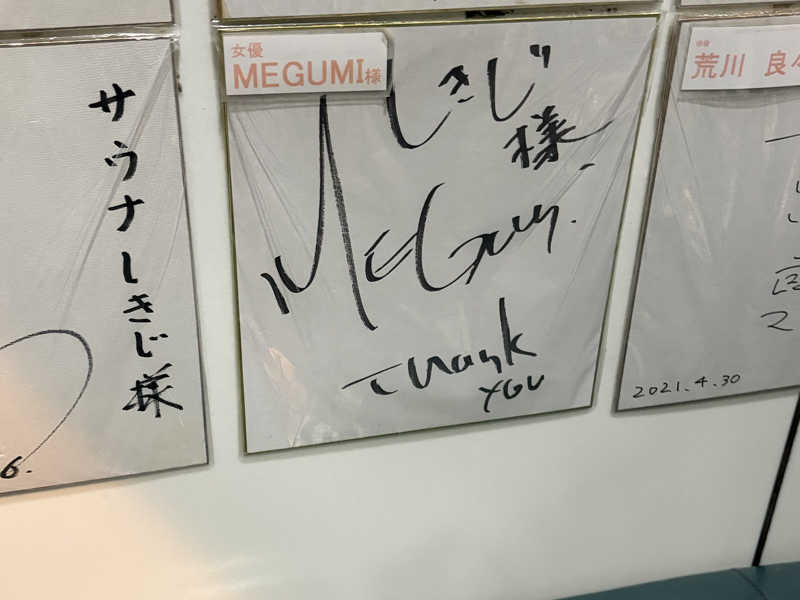 サウナしきじ様
6.
女優
MEGUMI様
しきじ様
MEGUMI
Thank
YOU
俳優
荒川 良々
2021.4.30